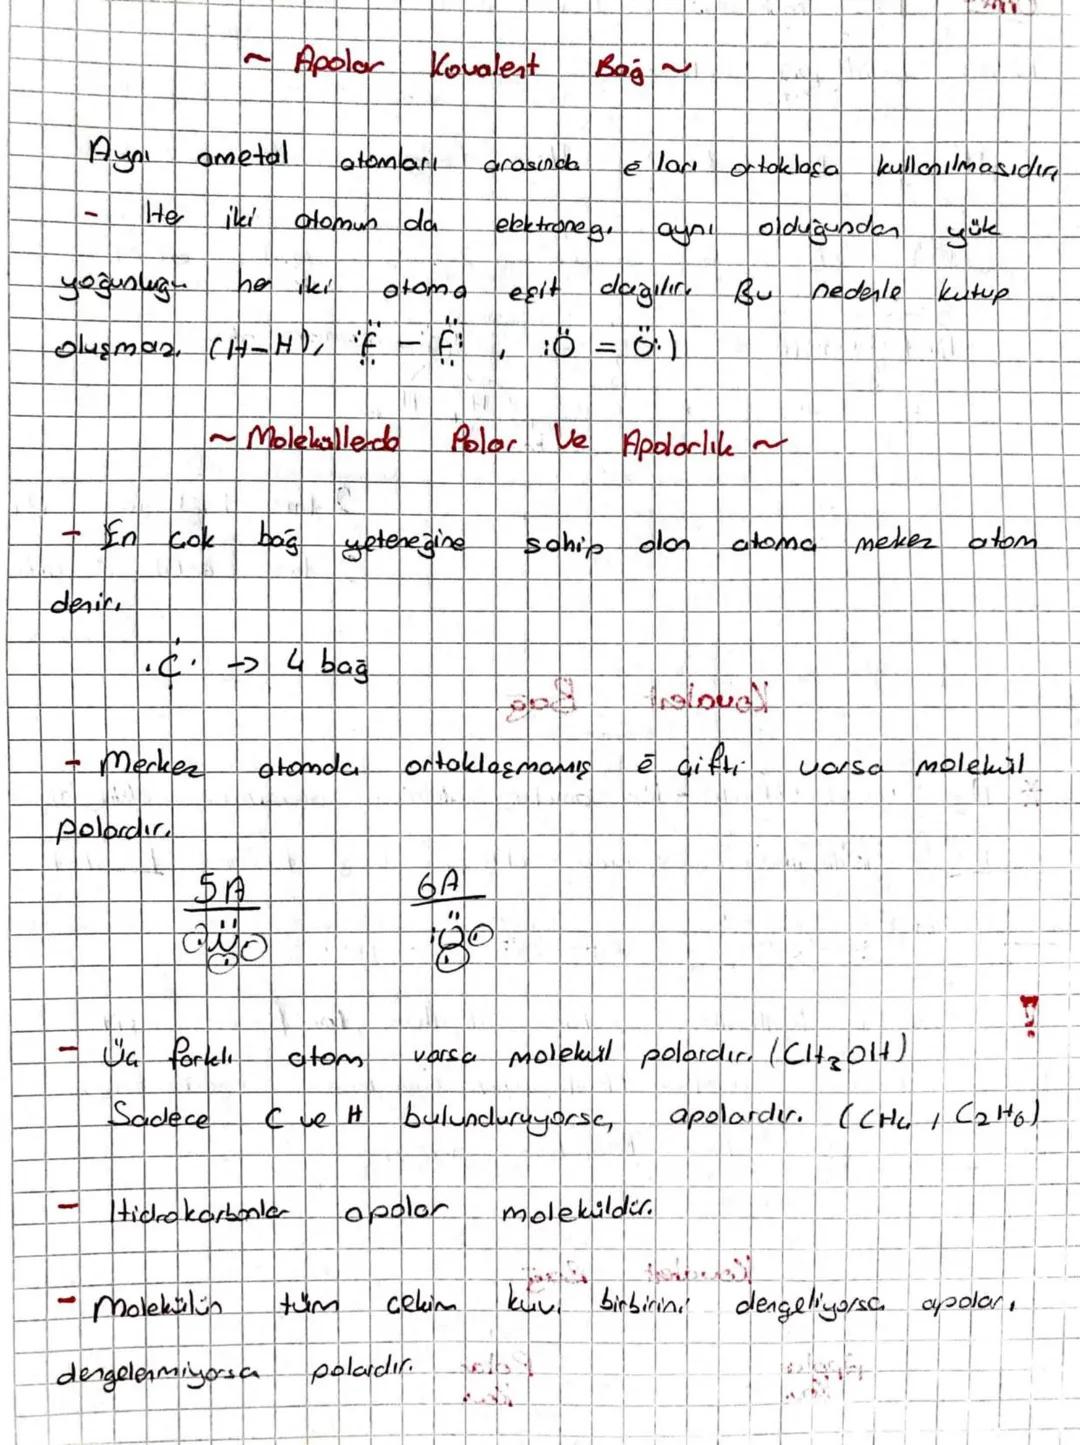 ~ Apolar Kovalent Bağ ~
Aynı ametal atomları arasında ē ları ortaklaşa kullanılmasıdır.
- He iki atomun da elektroneg. aynı olduğundan yük
yoğunluğu her iki atoma eşit dağılır. Bu nedenle kutup
oluşmaz. (H-H), :F̈ - F̈: , :Ö = Ö:)
~ Moleküllerde Polar Ve Apolarlık ~
- En çok bağ yeteneğine sahip olan atoma mekez atom
denir.
·C· → 4 bağ
- Merkez atomda ortaklaşmamış ē çifti varsa molekül
polardır.
5A 6A
- Üç farklı atom varsa molekül polardır. (CH₃OH)
Sadece C ve H bulunduruyorsa, apolardır. (CH₄, C₂H₆)
- Hidrokarbonlar apolar moleküldür.
- Molekülün tüm çekim kuv. birbirini dengeliyorsa apolar,
dengelenmiyorsa polardır.